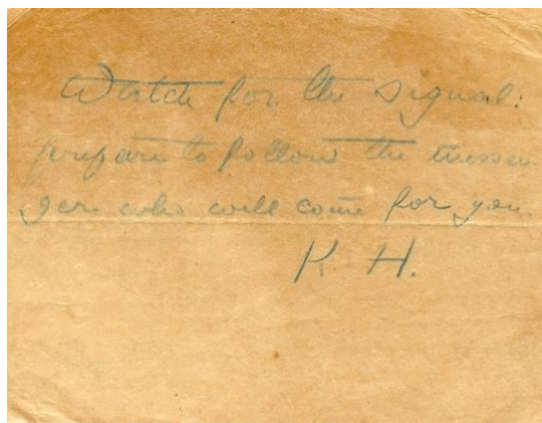 Watch for the signal:
prepare to follow the messen
ger who will come for you.
K H.